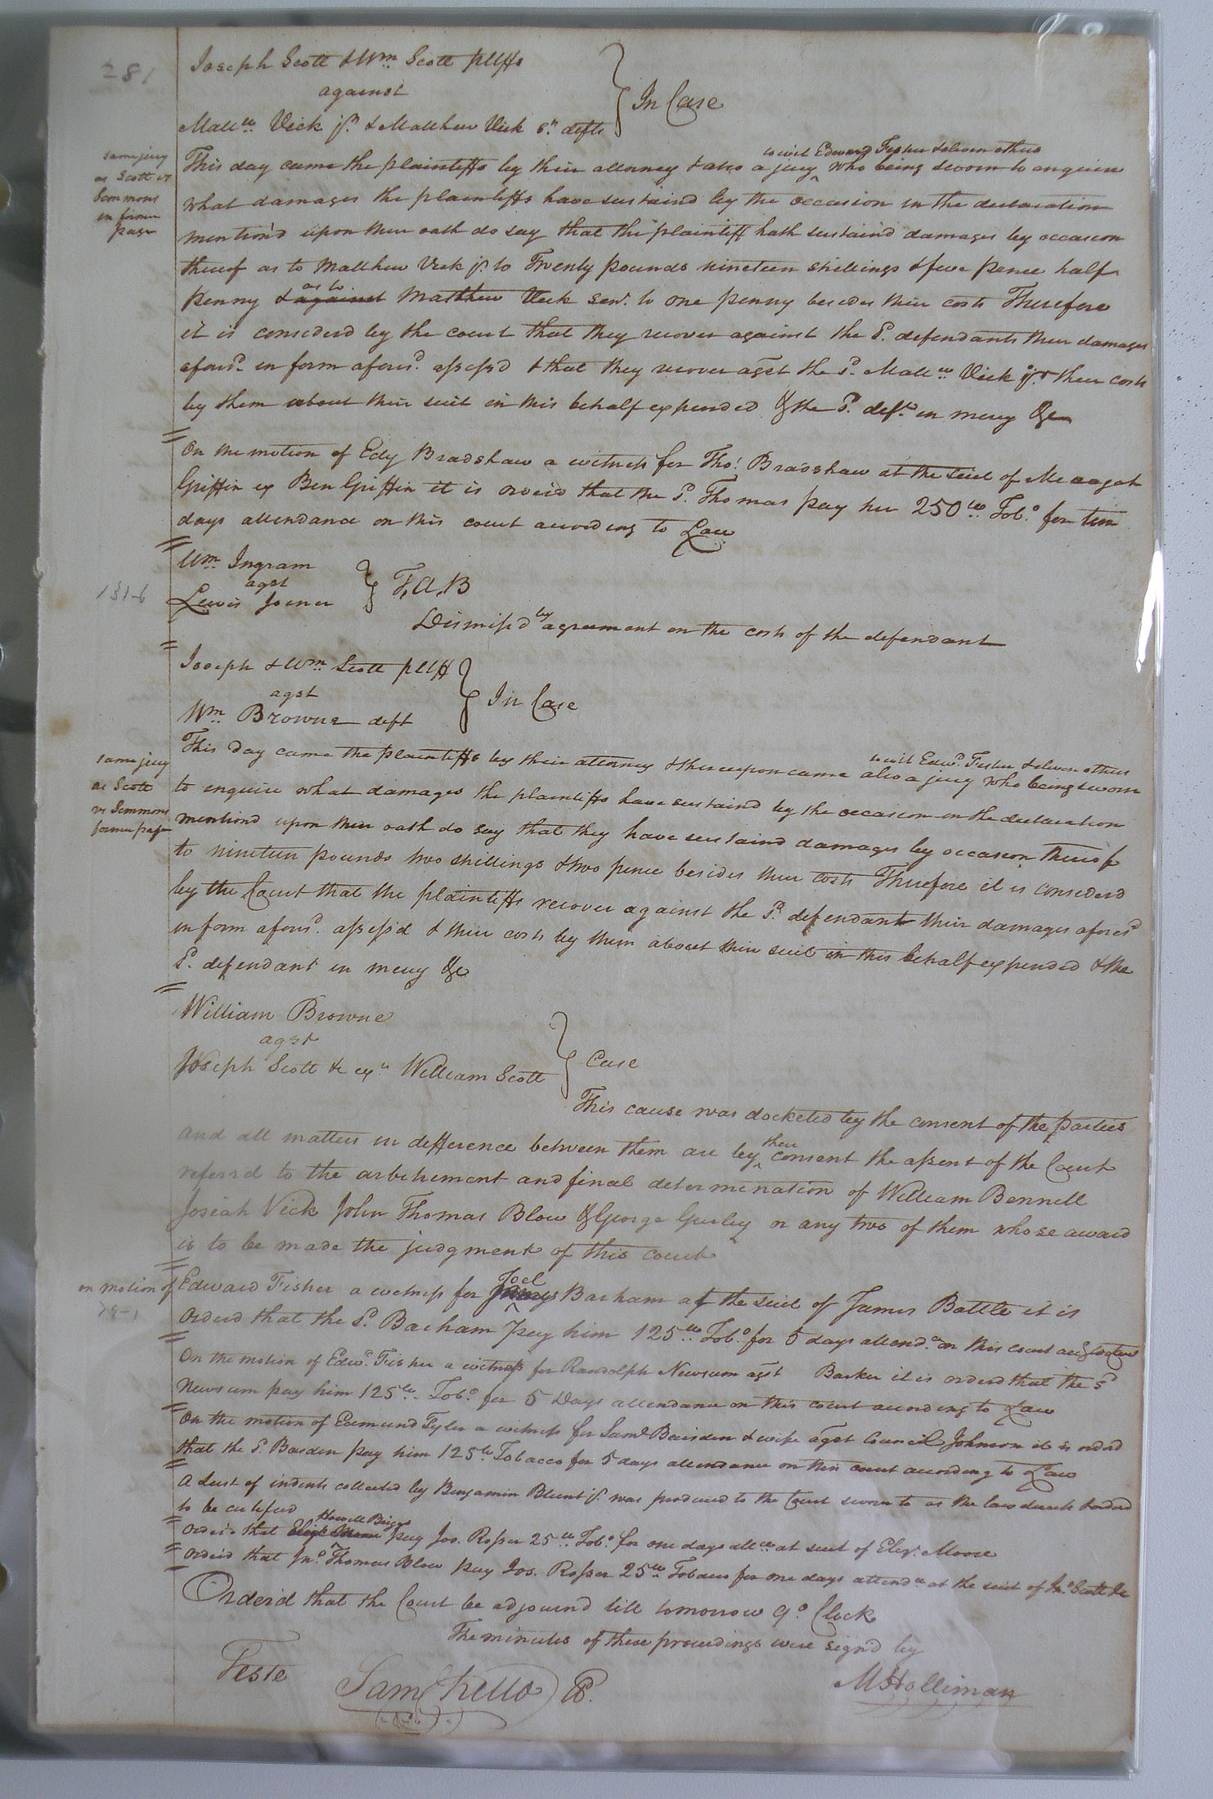 281
Joseph Scott & Wm Scott pltffs
against
In Case
Matt.w Vick jr. & Matthew Vick sr. defts
same jury
as Scott vs
Semmons
in former
page
to wit Edward Fisher & eleven others
This day came the plaintiffs by their attorney & also a jury who being sworn to enquire
what damages the plaintiffs have sustaind by the occasion in the declaration
mention'd upon their oath do say that the plaintiff hath sustain'd damages by occasion
thereof as to Matthew Vick jr. to Twenty pounds nineteen shillings & five pence half
as to
penny & against Matthew Vick senr. to one penny besides their costs Therefore
it is considerd by the court that they recover against the Sd. defendants their damages
aforesd. in form aforesd. assess'd & that they recover agst the Sd. Matt.w Vick jr their costs
by them about their suit in this behalf expended & the Sd. deft. in mercy &c
On the motion of Edy Bradshaw a witness for Thos. Bradshaw at the suit of
Griffin ex Ben Griffin it is orderd that the Sd. Thomas pay her 250 lbs Tobo. for ten
days attendance on this court according to Law
Wm Ingram
agst
T, A, B
181-6
Lewis Joener
Dismiss'd by agreement on the costs of the defendant
Joseph & Wm Scott pltff
agst
In Case
Wm. Browne deft
same jury
as Scott
vs Semmons
former page
to wit Edwd. Fisher & eleven others
This day came the plaintiffs by their attorney & thereupon came also a jury who being sworn
to enquire what damages the plaintiffs have sustaind by the occasion in the declaration
mentiond upon their oath do say that they have sustaind damages by occasion thereof
to nineteen pounds two shillings & two pence besides their costs Therefore it is considerd
by the Court that the plaintiffs recover against the Sd. defendant their damages aforesd
in form aforesd. assess'd & their costs by them about their suit in this behalf expended & the
Sd. defendant in mercy &c
William Browne
agst
Case
Joseph Scott & exr William Scott
This cause was docketed by the consent of the parties
and all matters in difference between them are by their consent the assent of the Court
referrd to the arbitrement and final determination of William Bennell
Josiah Vick John Thomas Blow & George Gurley or any two of them whose award
is to be made the judgment of this court
on motion of
Joel
Edward Fisher a witness for Barham at the suit of James Battle it is
orderd that the Sd. Barham pay him 125 lbs Tobo. for 5 days attendce. on this court
On the motion of Edwd. Fisher a witness for Randolph Newsum agst Barker it is orderd that the sd
Newsum pay him 125 lbs. Tobo. for 5 Days attendance on this court according to Law
On the motion of Edmund Tyler a witness for Saml Barsden & wife agst Council Johnson it is orderd
that the Sd. Barden pay him 125 lbs Tobacco for 5 days attendance on this court according to Law
A List of indents collected by Benjamin Blunt jr. was produced to the Court sworn to as the law directs & orderd
to be certified
Howell Briggs
Order'd that pay Jos. Rosser 25 lbs Tobo. for one days attce at suit of Moore
Orderd that Jno. Thomas Blow pay Jos. Rosser 25 lbs Tobacco for one days attendce at the suit of Jno. Scott Jr
Orderd that the Court be adjournd till tomorrow 9 o Clock
The minutes of these proceedings were sign'd by
Teste
Saml Kello
M Holliman